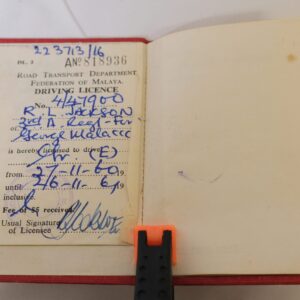 223713/16
DL. 2 AN⁰ 818936
ROAD TRANSPORT DEPARTMENT
FEDERATION OF MALAYA.
DRIVING LICENCE
No. 4/47900
R. L. JACKSON
of
George Malacca
is hereby licensed to drive
(E)
from 27-11-60 19
until 26-11-61 19
inclusive.
Fee of $5 received
Usual Signature
of Licensee